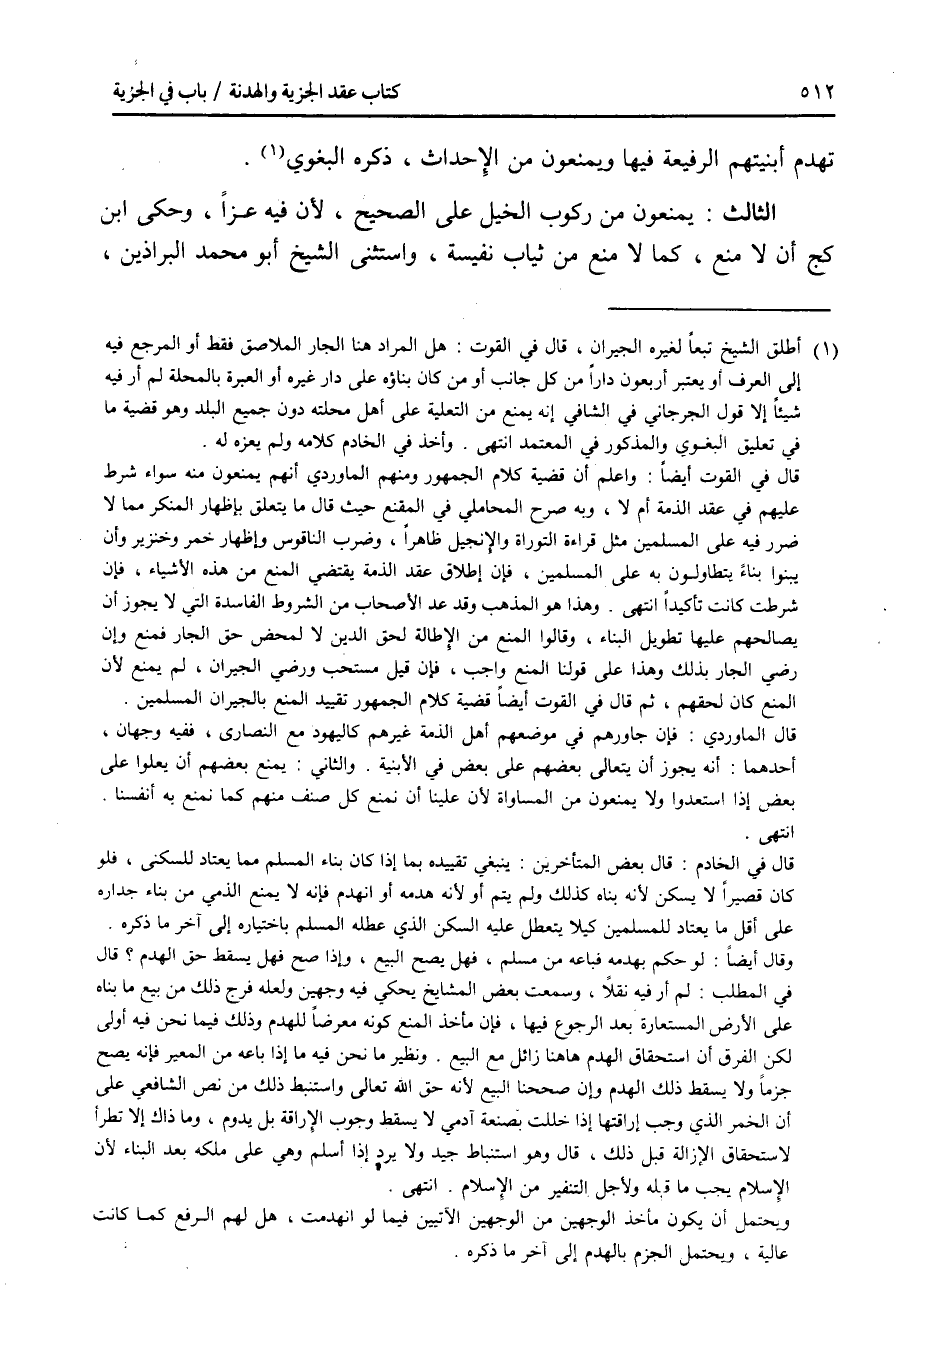 ٥١٢ كتاب عقد الجزية والهدنة / باب في الجزية
تهدم أبنيتهم الرفيعة فيها ويمنعون من الإحداث ، ذكره البغوي(١) .
الثالث : يمنعون من ركوب الخيل على الصحيح ، لأن فيه عـزاً ، وحكى ابن
كج أن لا منع ، كما لا منع من ثياب نفيسة ، واستثنى الشيخ أبو محمد البراذين ،
(١) أطلق الشيخ تبعاً لغيره الجيران ، قال في القوت : هل المراد هنا الجار الملاصق فقط أو المرجع فيه
إلى العرف أو يعتبر أربعون داراً من كل جانب أو من كان بناؤه على دار غيره أو العبرة بالمحلة لم أر فيه
شيئاً إلا قول الجرجاني في الشافي إنه يمنع من التعلية على أهل محلته دون جميع البلد وهو قضية ما
في تعليق البغوي والمذكور في المعتمد انتهى . وأخذ في الخادم كلامه ولم يعزه له .
قال في القوت أيضاً : واعلم أن قضية كلام الجمهور ومنهم الماوردي أنهم يمنعون منه سواء شرط
عليهم في عقد الذمة أم لا ، وبه صرح المحاملي في المقنع حيث قال ما يتعلق بإظهار المنكر مما لا
ضرر فيه على المسلمين مثل قراءة التوراة والإنجيل ظاهراً ، وضرب الناقوس وإظهار خمر وخنزير وأن
يبنوا بناءً يتطاولون به على المسلمين ، فإن إطلاق عقد الذمة يقتضي المنع من هذه الأشياء ، فإن
شرطت كانت تأكيداً انتهى . وهذا هو المذهب وقد عد الأصحاب من الشروط الفاسدة التي لا يجوز أن
يصالحهم عليها تطويل البناء ، وقالوا المنع من الإطالة لحق الدين لا لمحض حق الجار فمنع وإن
رضي الجار بذلك وهذا على قولنا المنع واجب ، فإن قيل مستحب ورضي الجيران ، لم يمنع لأن
المنع كان لحقهم ، ثم قال في القوت أيضاً قضية كلام الجمهور تقييد المنع بالجيران المسلمين .
قال الماوردي : فإن جاورهم في موضعهم أهل الذمة غيرهم كاليهود مع النصارى ، ففيه وجهان ،
أحدهما : أنه يجوز أن يتعالى بعضهم على بعض في الأبنية . والثاني : يمنع بعضهم أن يعلوا على
بعض إذا استعدوا ولا يمنعون من المساواة لأن علينا أن نمنع كل صنف منهم كما نمنع به أنفسنا .
انتهى .
قال في الخادم : قال بعض المتأخرين : ينبغي تقييده بما إذا كان بناء المسلم مما يعتاد للسكنى ، فلو
كان قصيراً لا يسكن لأنه بناه كذلك ولم يتم أو لأنه هدمه أو انهدم فإنه لا يمنع الذمي من بناء جداره
على أقل ما يعتاد للمسلمين كيلا يتعطل عليه السكن الذي عطله المسلم باختياره إلى آخر ما ذكره .
وقال أيضاً : لو حكم بهدمه فباعه من مسلم ، فهل يصح البيع ، وإذا صح فهل يسقط حق الهدم ؟ قال
في المطلب : لم أر فيه نقلًا ، وسمعت بعض المشايخ يحكي فيه وجهين ولعله فرج ذلك من بيع ما بناه
على الأرض المستعارة بعد الرجوع فيها ، فإن مأخذ المنع كونه معرضاً للهدم وذلك فيما نحن فيه أولى
لكن الفرق أن استحقاق الهدم هاهنا زائل مع البيع . ونظير ما نحن فيه ما إذا باعه من المعير فإنه يصح
جزماً ولا يسقط ذلك الهدم وإن صححنا البيع لأنه حق الله تعالى واستنبط ذلك من نص الشافعي على
أن الخمر الذي وجب إراقتها إذا خللت بصنعة آدمي لا يسقط وجوب الإراقة بل يدوم ، وما ذاك إلا تطرأ
لاستحقاق الإزالة قبل ذلك ، قال وهو استنباط جيد ولا يرد إذا أسلم وهي على ملكه بعد البناء لأن
الإسلام يجب ما قبله ولأجل التنفير من الإسلام . انتهى .
ويحتمل أن يكون مأخذ الوجهين من الوجهين الآتيين فيما لو انهدمت ، هل لهم الرفع كما كانت
عالية ، ويحتمل الجزم بالهدم إلى آخر ما ذكره .